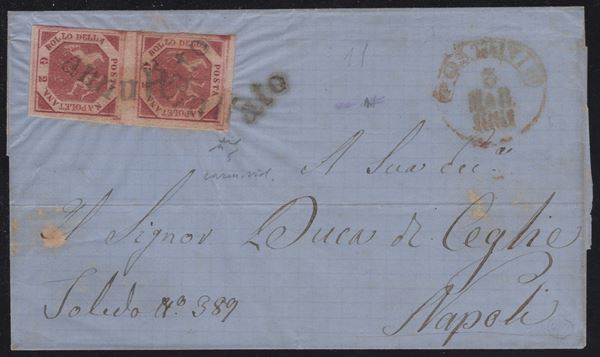 BOLLO DELLA
POSTA
NAPOLETANA
G 2
BOLLO DELLA
POSTA
NAPOLETANA
G 2
Annullato
5
MAR
A Sua Ecc.ª
Il Signor Duca di Ceglie
Toledo Nº 389
Napoli